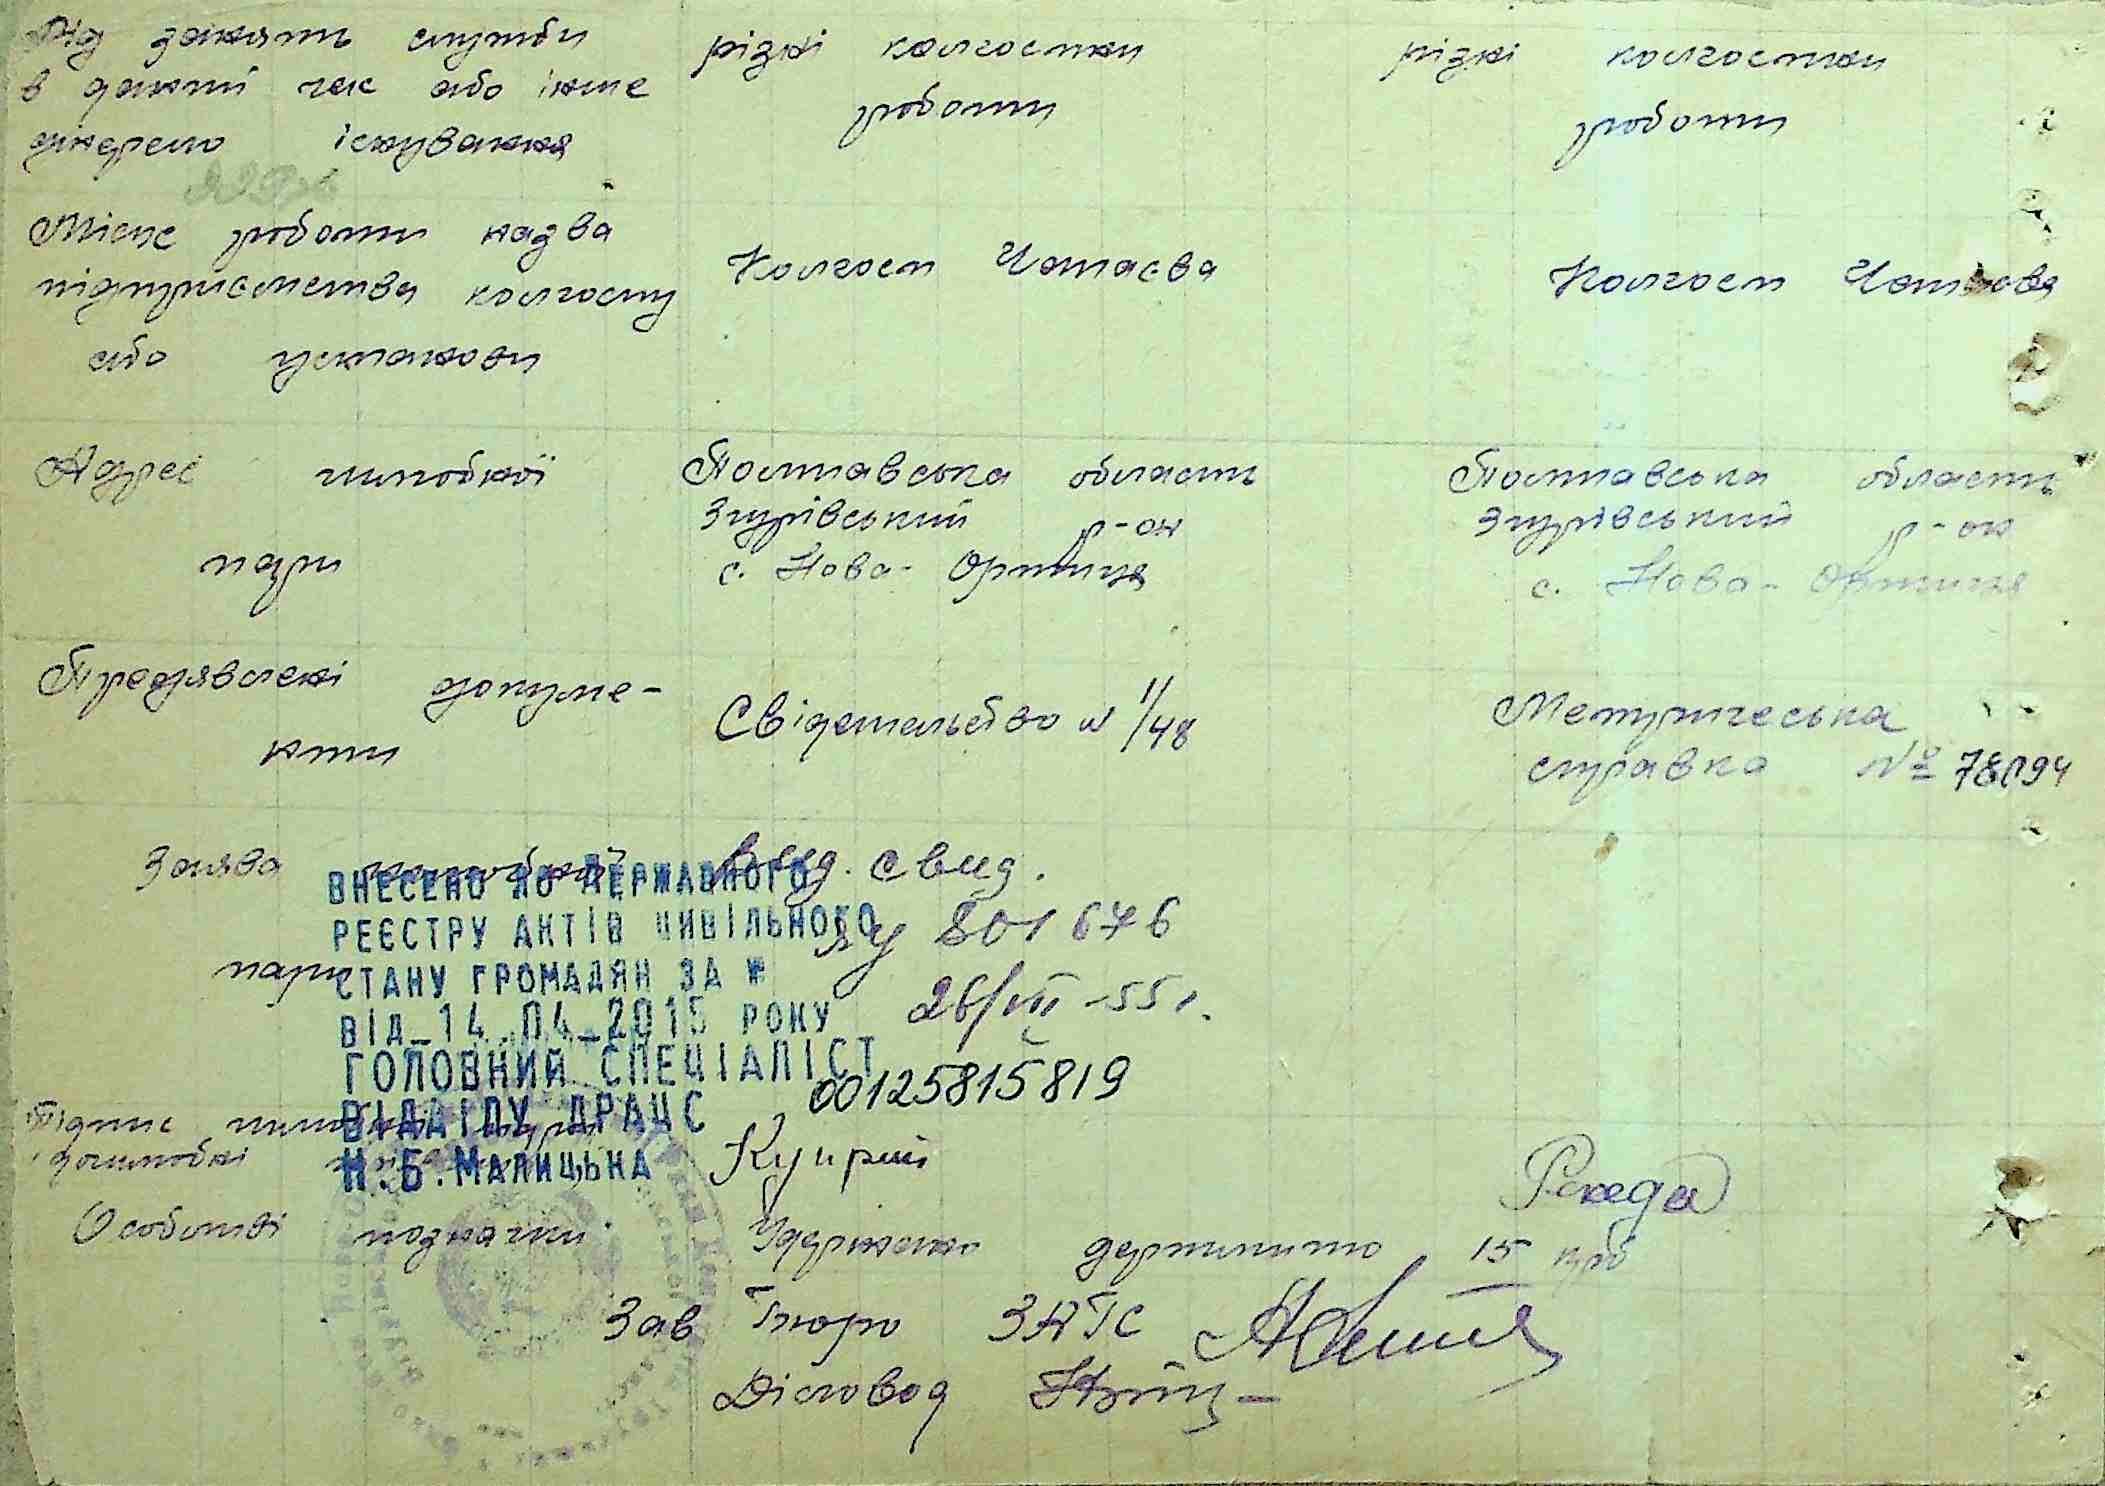 Рід занять служби
в даний час або інше
джерело існування
різні колгоспни
роботи
різні колгоспни
роботи
Місце роботи назва
підприємства колгоспу
або установи
Колгосп Чапаєва
Колгосп Чапаєва
Адрес шлюбної
пари
Полтавська область
Згурівський р-он
с. Нова-Оржиця
Полтавська область
Згурівський р-он
с. Нова-Оржиця
Предявлені докуме-
нти
Свідетельство № 1/48
Метричеська
справка №
Заява шлюбної
пари
выд. свид.
801676
26/VII-55 г.
00125815819
ВНЕСЕНО ДО ДЕРЖАВНОГО
РЕЄСТРУ АКТІВ ЦИВІЛЬНОГО
СТАНУ ГРОМАДЯН ЗА №
ВІД_14_04_2015 РОКУ
ГОЛОВНИЙ СПЕЦІАЛІСТ
ВІДДІЛУ ДРАЦС
Н.Б.МАЛИЦЬКА
Підпис шлюбної пари
дошлюбні
Куприй
Рекеда
Особливі позначки.
Удержано держмито 15 крб
Зав Бюро ЗАГС
Діловод